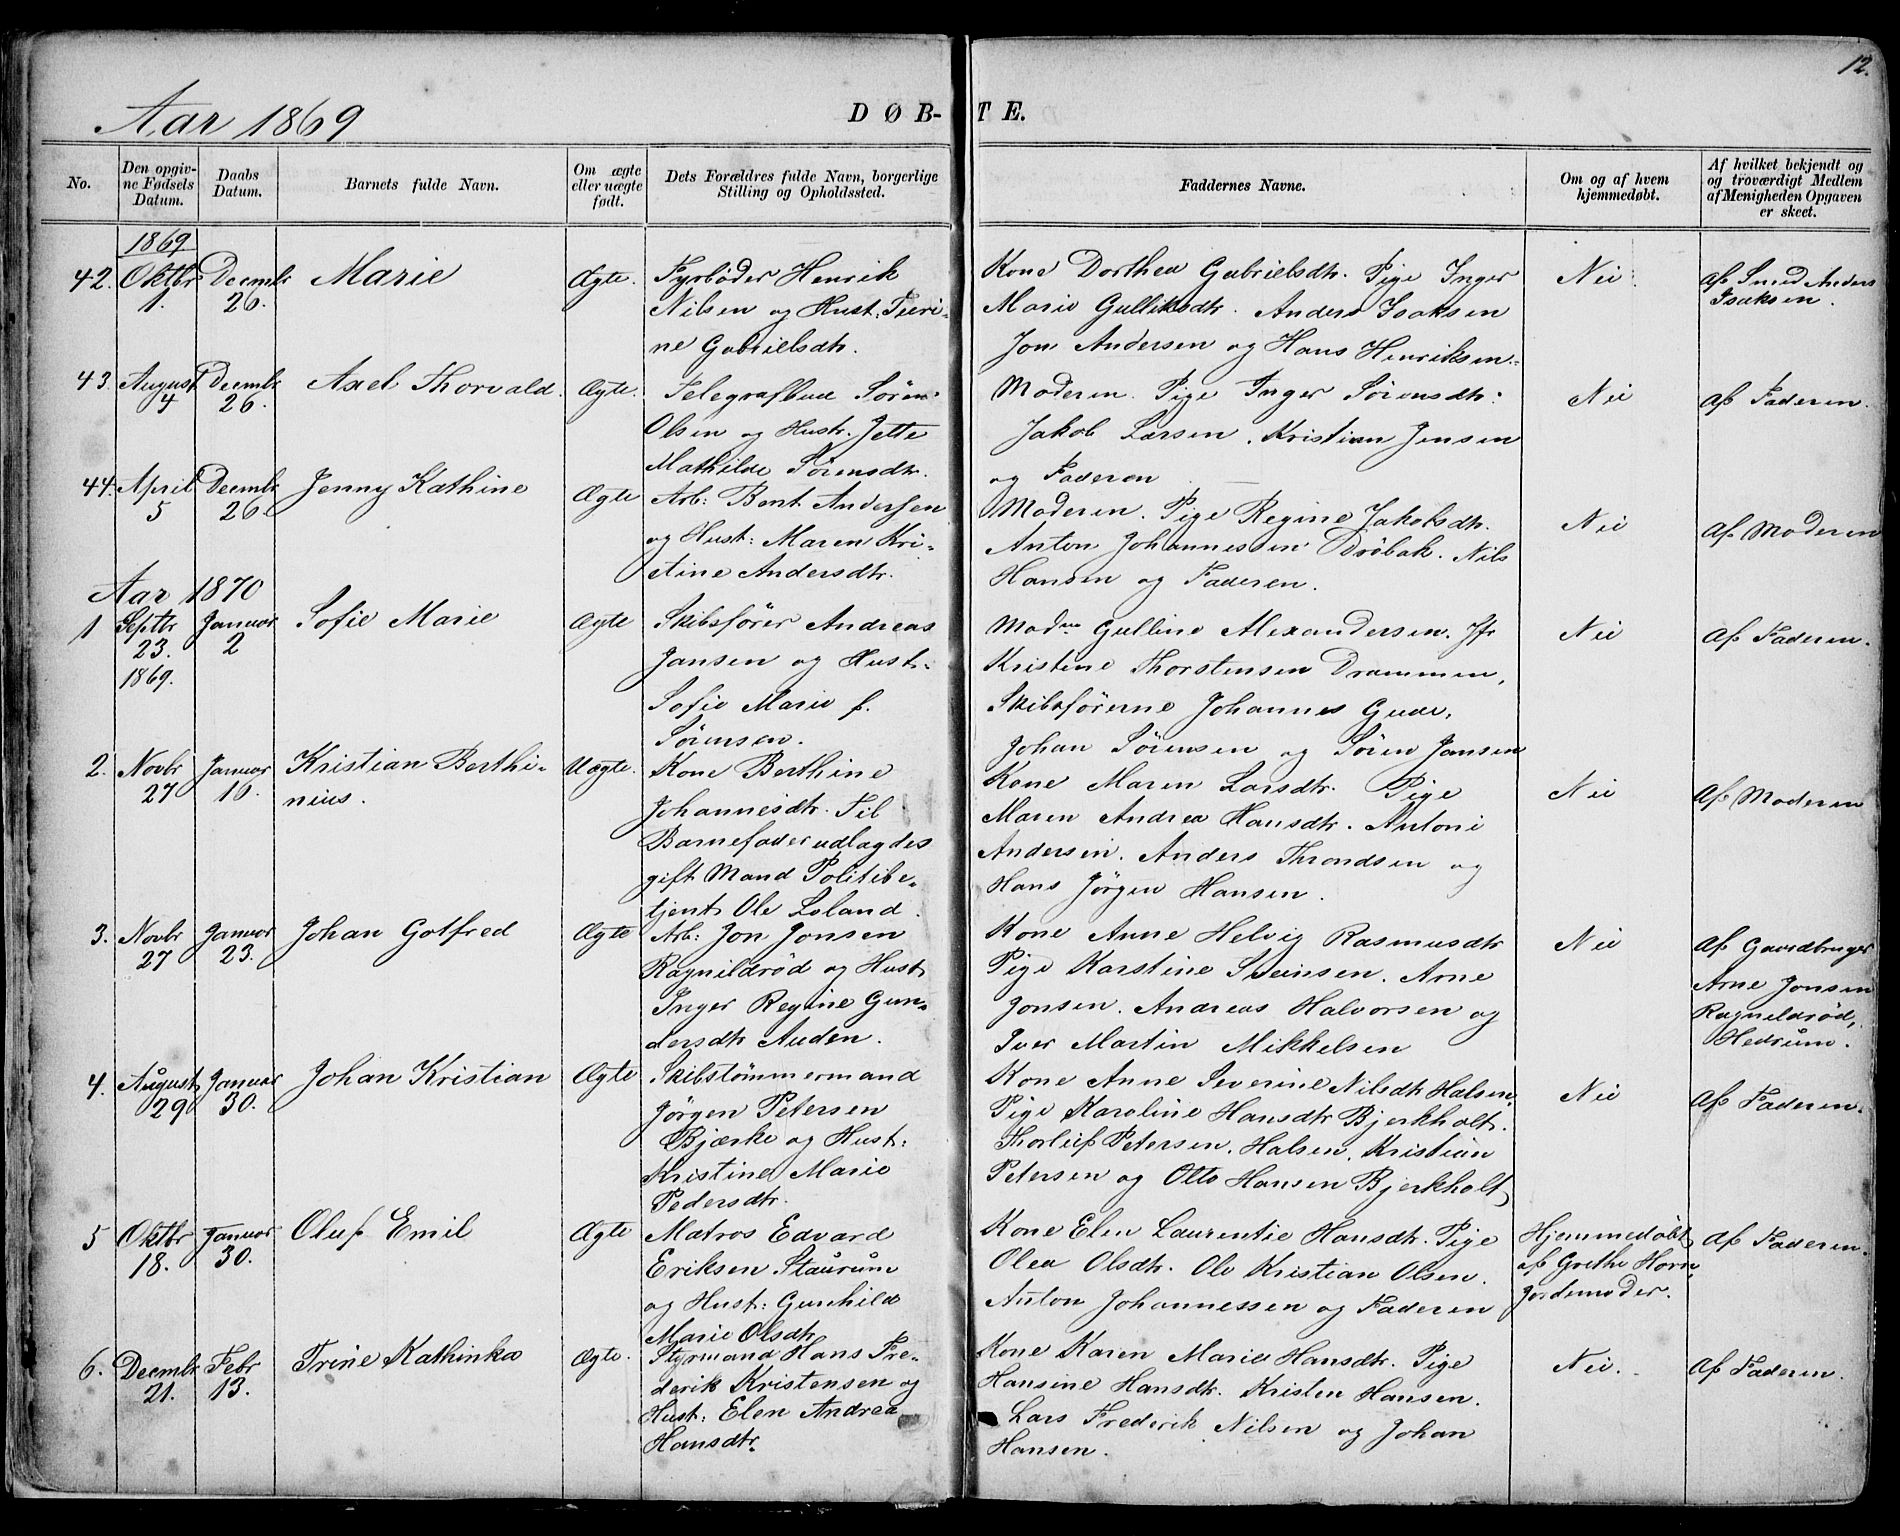 12.
Aar 1869
DØB-TE.
No.
Den opgiv-
ne Fødsels
Datum.
Daabs
Datum.
Barnets fulde Navn.
Om ægte
eller uægte
født.
Dets Forældres fulde Navn, borgerlige
Stilling og Opholdssted.
Faddernes Navne.
Om og af hvem
hjemmedøbt.
Af hvilket bekjendt og
og troværdigt Medlem
af Menigheden Opgaven
er skeet.
1869
42.
Oktbr
1.
Decmbr
26.
Marie
Ægte.
Fyrbøder Henrik
Nilsen og Hust:
ne Gabrielsdtr.
Kone Dorthea Gabrielsdtr. Pige Inger
Marie Gulliksdtr. Anders Isaksen
Jon Andersen og Hans Henriksen.
Nei
af Smed Anders
Isaksen.
43.
August
4
Decmbr
26.
Axel Thorvald.
Ægte.
Telegrafbud Søren
Olsen og Hustr. Jette
Mathilde Sørensdtr.
Moderen. Pige Inger Sørensdtr.
Jakob Larsen. Kristian Jensen
og Faderen
Nei
af Faderen.
44.
April
5
Decmbr
26.
Jenny Kathine
Ægte
Arb: Bent Andersen
og Hust: Maren Kri-
stine Andersdtr.
Moderen. Pige Regine Jakobsdtr.
Anton Johannessen Drøbak. Nils
Hansen og Faderen.
Nei
af Moderen
Aar 1870
1
Septbr
23.
1869.
Januar
2
Sofie Marie
Ægte
Skibsfører Andreas
Jansen og Hust.
Sofie Marie f.
Sørensen.
Madm Gulline Alexandersen. Jfr
Kristine Thorstensen Drammen,
Skibsførerne Johannes Gude,
Johan Sørensen og Søren Jansen
Nei
af Faderen.
2.
Novbr
27
Januar
16.
Kristian Berthi-
nius.
Uægte.
Kone Berthine
Johannesdtr. Til
Barnefader udlagdes
gift Mand Politibe-
tjent Ole Loland.
Kone Maren Larsdtr. Pige
Maren Andrea Hansdtr. Antoni
Andersen. Anders Throndsen og
Hans Jørgen Hansen.
Nei
af Moderen
3.
Novbr
27
Januar
23.
Johan Gotfred
Ægte
Arb: Jon Jonsen
Ragnildrød og Hust
Inger Regine Gun-
dersdtr Auden.
Kone Anne Helvig Rasmusdtr
Pige Karstine Sveinsen. Arne
Jonsen. Andreas Halvorsen og
Iver Martin Mikkelsen
Nei
af Gaardbruger
Arne Jonsen
Ragnildrød,
Hedrum.
4.
August
29
Januar
30.
Johan Kristian
Ægte
Skibstømmermand
Jørgen Petersen
Bjærke og Hust:
Kristine Marie
Pedersdtr.
Kone Anne Severine Nilsdtr Halsen.
Pige Karoline Hansdtr Bjerkholt.
Thorleif Petersen. Halsen. Kristian
Petersen og Otto Hansen Bjerkholt
Nei
af Faderen.
5
Oktbr
18.
Januar
30.
Oluf Emil
Ægte
Matros Edvard
Eriksen Staurum
og Hust: Gunhild
Marie Olsdtr
Kone Elen Laurentie Hansdtr. Pige
Olea Olsdtr. Ole Kristian Olsen.
Anton Johannessen og Faderen
Hjemmedøbt
af Grethe Horn,
Jordemoder.
af Faderen.
6.
Decmbr
21.
Febr
13.
Trine Kathinka
Ægte.
Styrmand Hans Fre-
derik Kristensen og
Hust: Elen Andrea
Hansdtr.
Kone Karen Marie Hansdtr. Pige
Hansine Hansdtr. Kristen Hansen.
Lars Frederik Nilsen og Johan
Hansen.
Nei.
af Faderen.